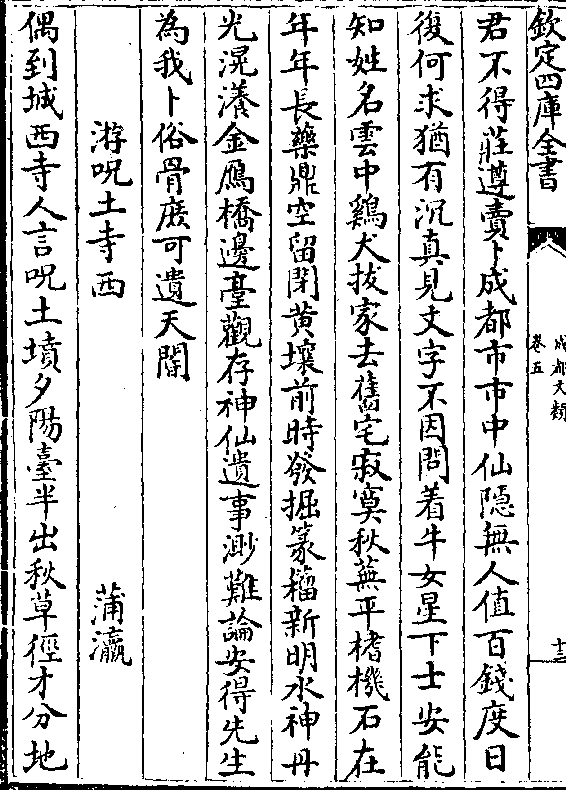 欽定四庫全書
成都文類
卷五
十三
君不得莊遵賣卜成都市市中仙隱無人值百錢度日
復何求猶有沉真見文字不因問着牛女星下士安能
知姓名雲中鷄犬拔家去舊宅寂寞秋蕪平楮機石在
年年長藥鼎空留閉黄壤前時發掘篆籀新明水神丹
光滉瀁金鴈橋邊臺觀存神仙遺事渺難論安得先生
為我卜俗骨庶可遺天閽
游呪土寺西
蒲瀛
偶到城西寺人言呪土墳夕陽臺半出秋草徑才分地